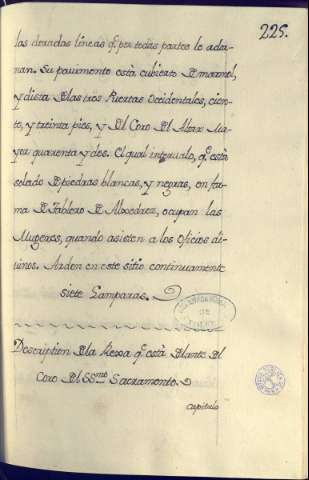 225.
las doradas lineas q̃ por todas partes lo ador-
nan. Su pavimento està cubierto de marmol,
y dista de las tres Puertas Occidentales, cien-
to, y treinta pies, y del Coro del Altar Ma-
yor quarenta y dos. El qual intervalo, q̃ està
solado de piedras blancas, y negras, en for-
ma de tablero de Alxedrez, ocupan las
Mugeres, quando asisten a los Oficios di-
uinos. Arden en este sitio continuamente
siete Lamparas.
Description de la Rexa q̃ està delante del
Coro del SS.mo Sacramento.
Capitulo